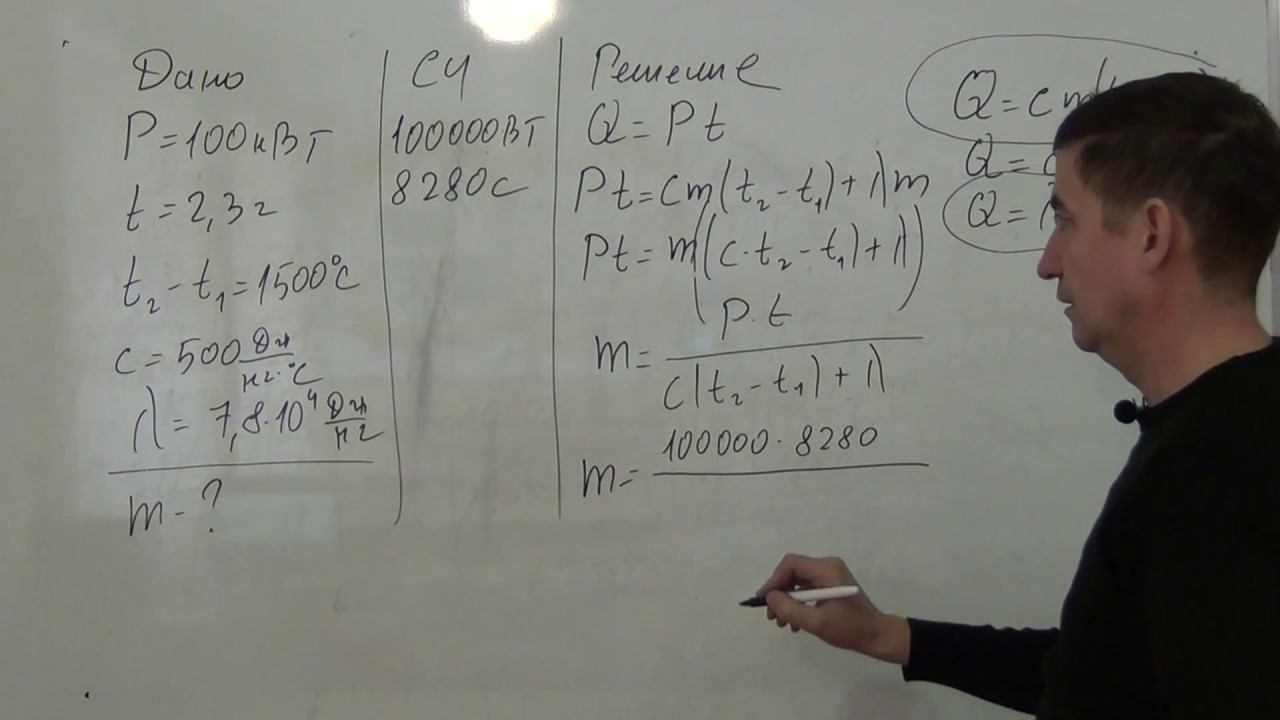 Дано
P=100кВт
t=2,3ч
t₂-t₁=1500°C
c=500 Дж/кг·°C
λ=7,8·10⁴ Дж/кг
m-?
СИ
100000Вт
8280с
Решение
Q=Pt
Pt=cm(t₂-t₁)+λm
Pt=m(c·t₂-t₁)+λ)
m= P·t/c(t₂-t₁)+λ
m= 100000·8280
Q=cm
Q=
Q=